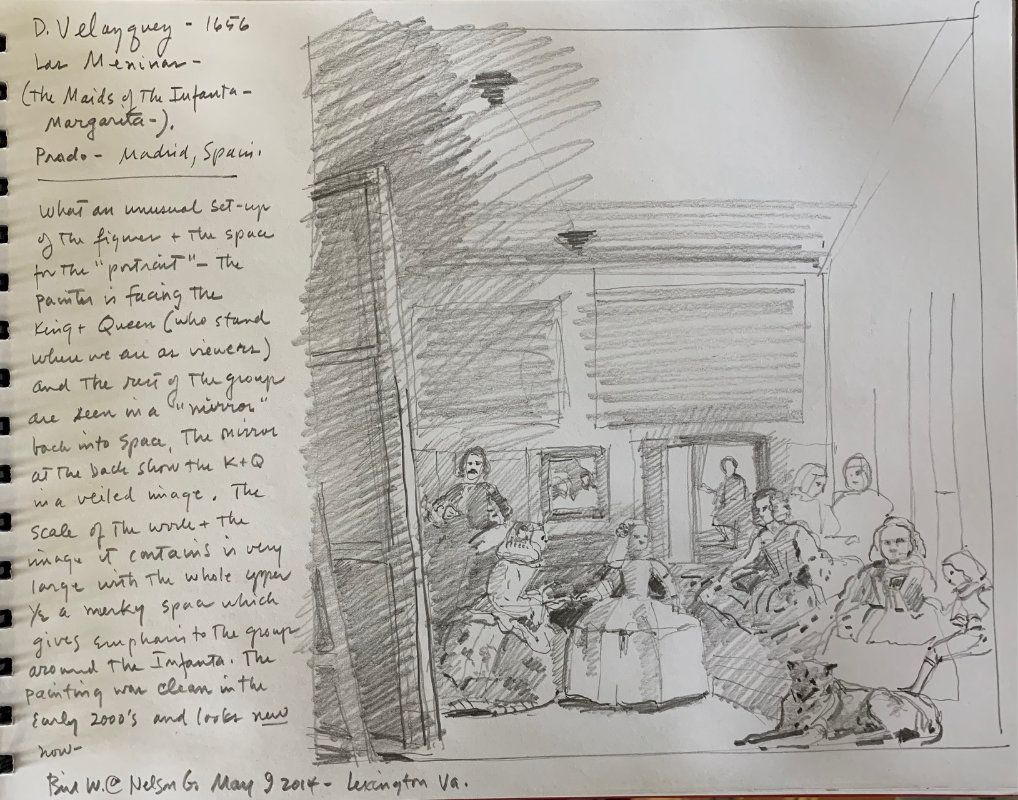 D. Velazquez - 1656
Las Meninas -
(The Maids of The Infanta -
Margarita -).
Prado - Madrid, Spain.
What an unusual set-up
of The figures + The space
for The "portrait" - The
painter is facing the
King + Queen (who stand
where we are as viewers)
and The rest of The group
are seen in a "mirror"
back into space. The mirror
at The back show the K+Q
in a veiled image. The
scale of The work + The
image it contains is very
large with The whole upper
1/2 a merky space which
gives emphasis to The group
around The Infanta. The
painting was clean in the
Early 2000's and looks new
now -
W. @ Nelson G. May 9 2014 - Lexington Va.